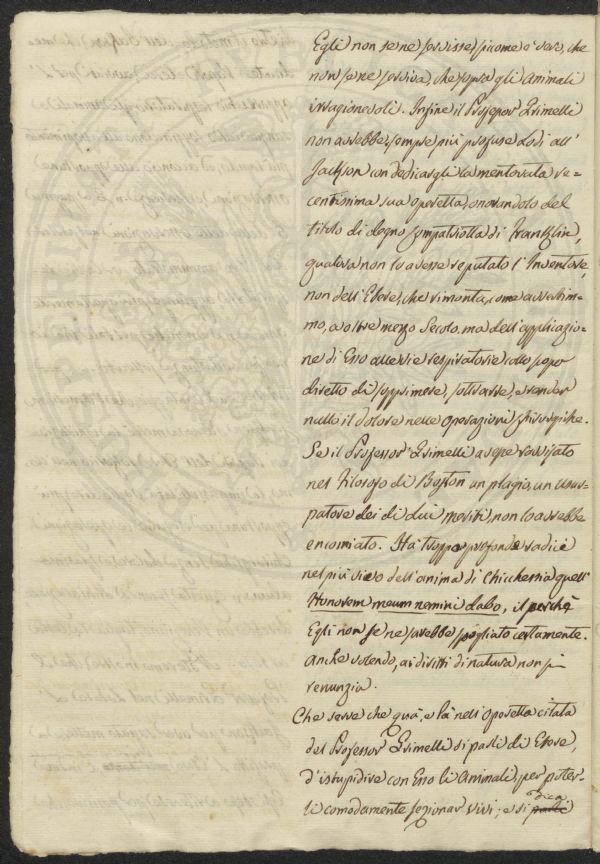 Egli non se ne servisse, siccome è vero, che
non se ne serviva, che sopra gli animali
irragionevoli. Infine il Professor Grimelli
non avrebbe sempre più profuse Lodi all'
Jackson con dedicargli la mentovata re-
centissima sua operetta, onorandolo del
titolo di degno compatriotta di Franklin,
qualora non lo avesse reputato l'Inventore,
non dell'Etere, che rimonta, come avvertim-
mo, a oltre mezzo Secolo, ma dell'applicazio-
ne di Esso alle vie respiratorie collo scopo
diretto di sopprimere, sottrarre, e render
nullo il dolore nelle operazioni chirurgiche.
Se il Professor Grimelli avesse ravvisato
nel Filosofo di Boston un plagio, un usur-
patore dei di lui meriti, non lo avrebbe
encomiato. Ha troppo profonde radici
nel più vivo dell'anima di chicchessia quell'
Honorem meum nemini dabo, il perchè
Egli non se ne sarebbe spogliato certamente.
Anche volendo, ai diritti di natura non si
renunzia.
Che serve che quà, e là nell'operetta citata
del Professor Grimelli si parli di Etere,
d'istupidire con Esso li Animali, per poter-
li comodamente sezionar vivi; e si dica